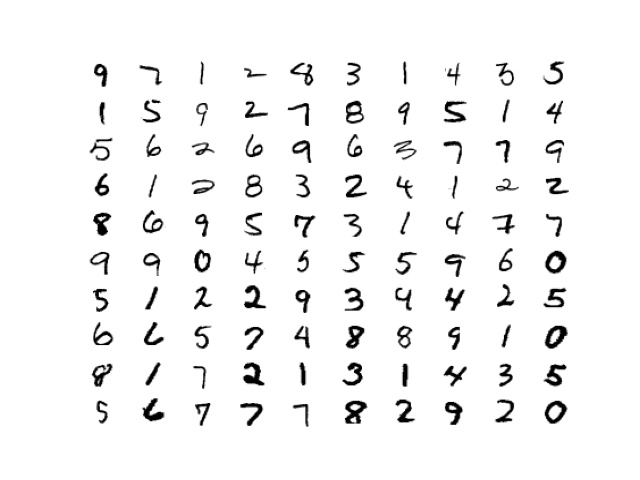 9 7 1 2 8 3 1 4 3 5
1 5 9 2 7 8 9 5 1 4
5 6 2 6 9 6 3 7 7 9
6 1 2 8 3 2 4 1 2 2
8 6 9 5 7 3 1 4 7 7
9 9 0 4 5 5 5 9 6 0
5 1 2 2 9 3 9 4 2 5
6 6 5 7 4 8 8 9 1 0
8 1 7 2 1 3 1 4 3 5
5 6 7 7 7 8 2 9 2 0